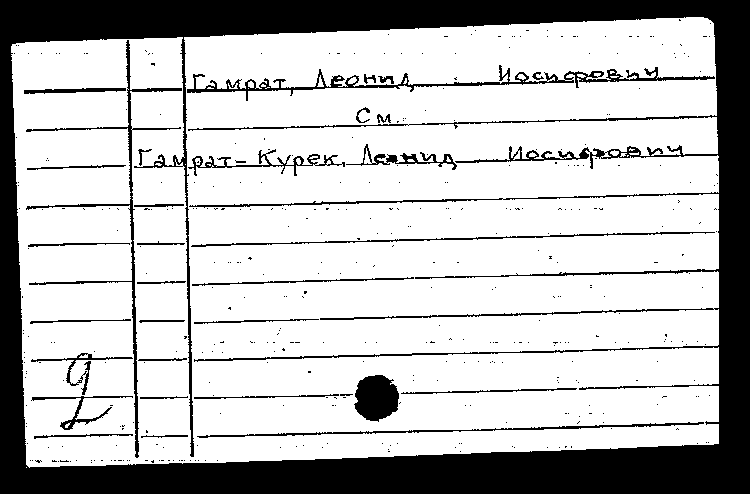 Гамрат, Леонид Иосифович
См.
Гамрат-Курек, Леонид Иосифович
2